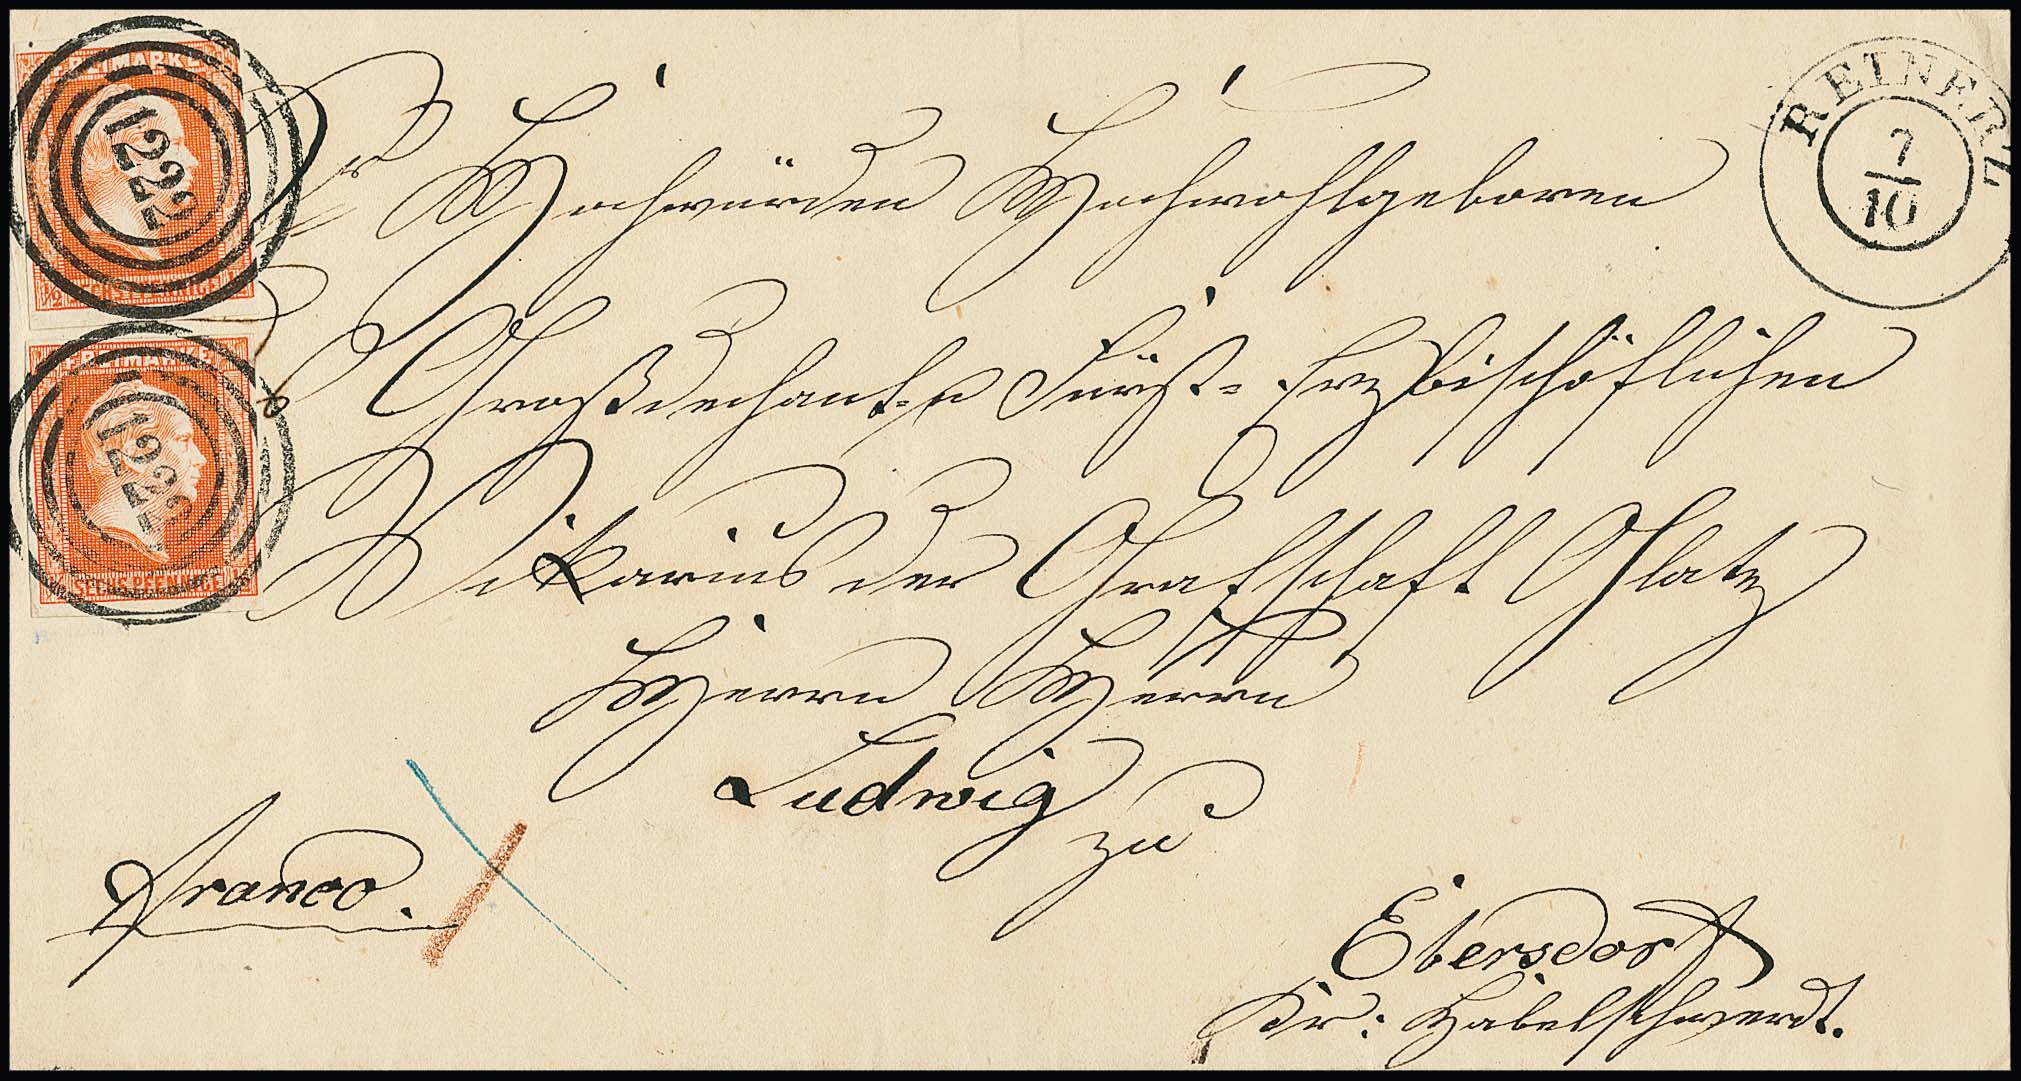 FREIMARKE
1222
½ SECHS PFENNIGE ½
FREIMARKE
1222
½ SECHS PFENNIGE ½
REINERZ
7
10
Sr Hochwürden Hochwohlgeboren
Großdechant u Fürst-Erzbischöflichen
Vikarius der Grafschaft Glatz
Herrn Herrn
Ludwig
zu
franco.
Ebersdorf
Kr: Habelschwerdt.